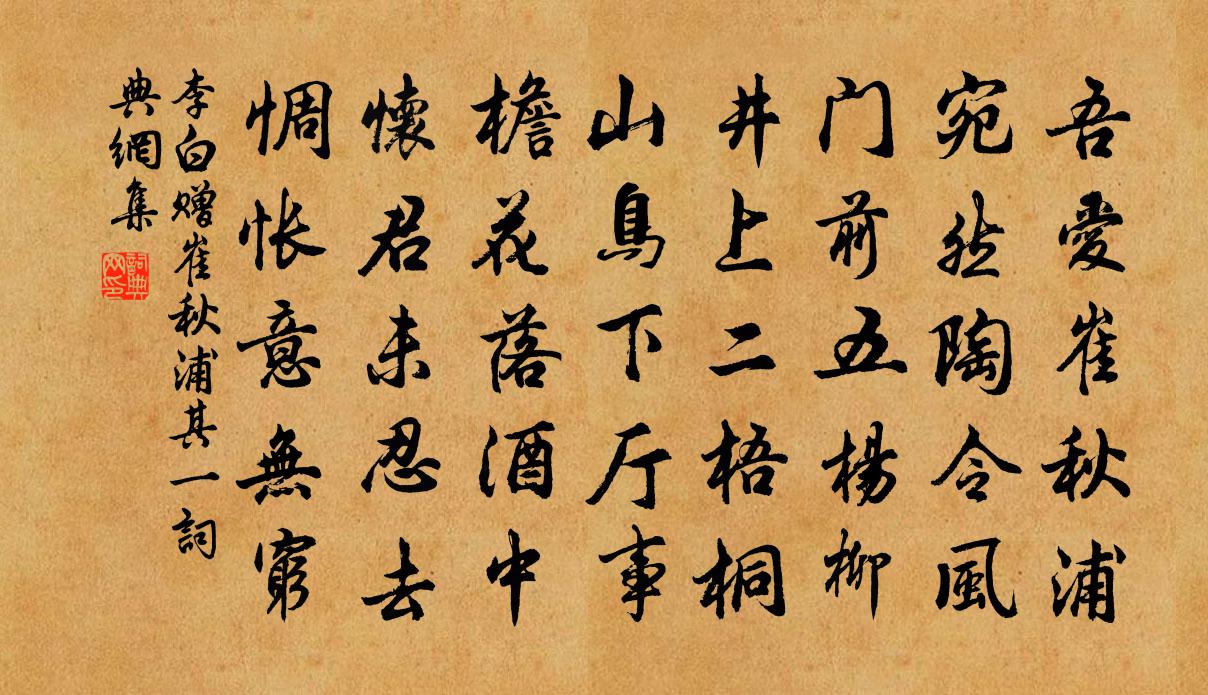 吾愛崔秋浦
宛然陶令風
门前五楊柳
井上二梧桐
山鳥下厅事
檐花落酒中
懷君未忍去
惆怅意無窮
李白赠崔秋浦其一詞
典網集
詞典
网印